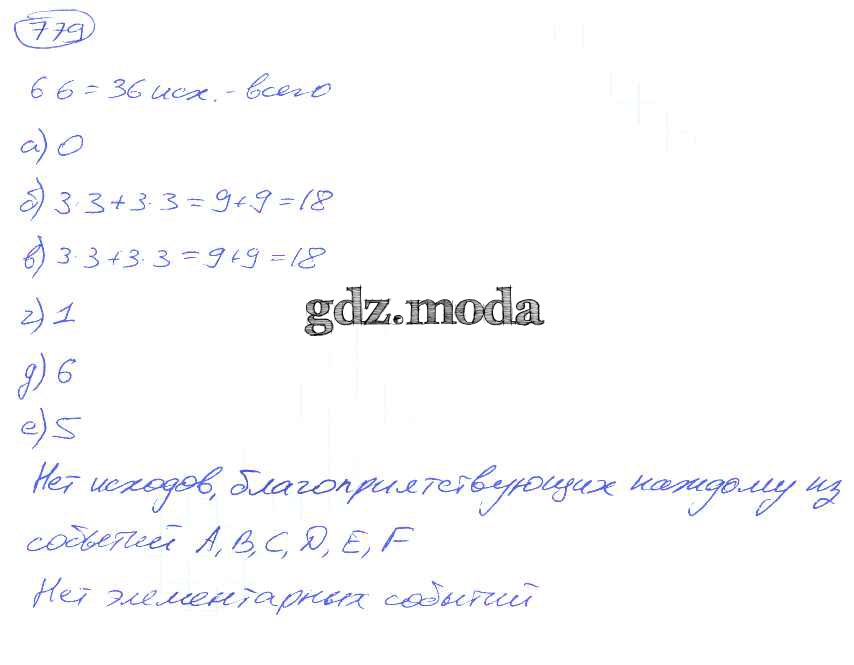 779
6 6 = 36 исх. - всего
а) 0
б) 3·3+3·3=9+9=18
в) 3·3+3·3=9+9=18
gdz.moda
г) 1
д) 6
е) 5
Нет исходов, благоприятствующих каждому из
событий A, B, C, D, E, F
Нет элементарных событий